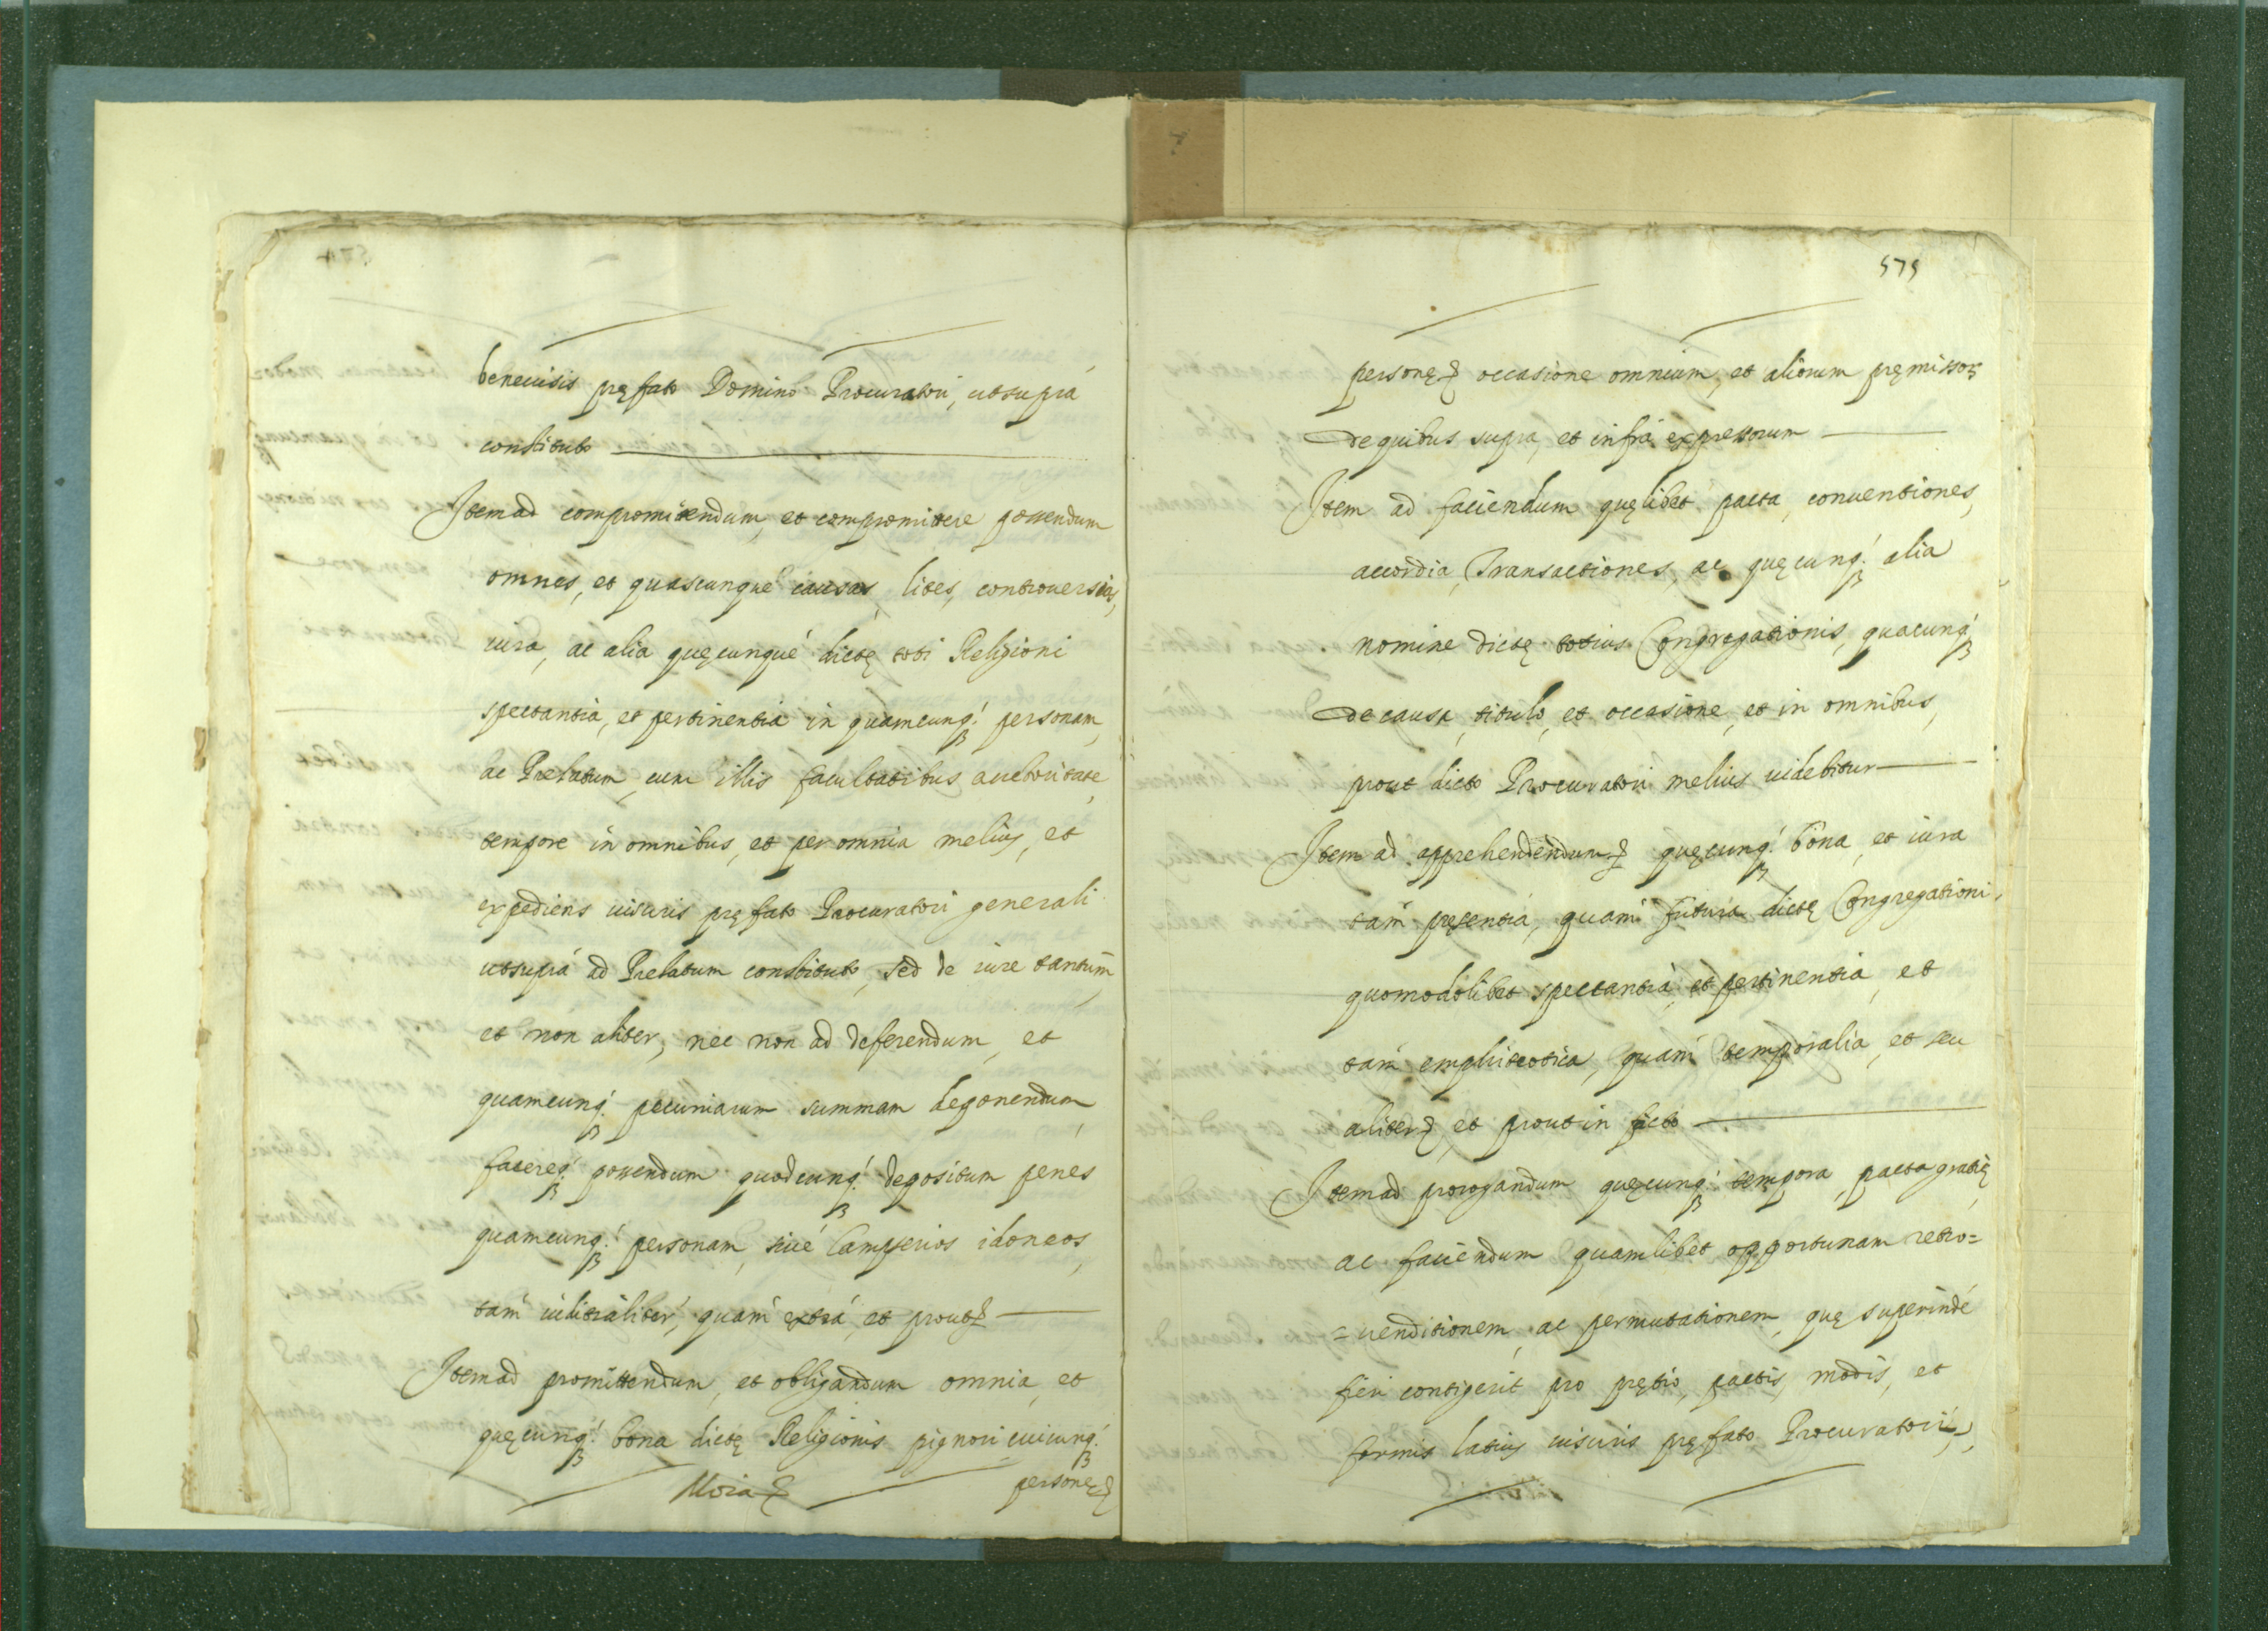 beneuisis pręfato Domino Procuratori, utsuprà
constituto
Item ad compromittendum, et compromittere ponendum
omnes, et quascunquè causas, lites, controuersias,
iura, ac alia quęcunquè dictę toti Religioni
spectantia, et pertinentia in quamcunq; personam,
ac Prelatum, cum illis facultatibus auctoritate,
tempore in omnibus, et per omnia melius, et
expediens uisuris pręfato Procuratori generali
utsuprà ad Prelatum constituto, sed de iure tantùm,
et non aliter, nec non ad deferendum, et
quamcunq; pecuniarum summam deponendum,
facereq; ponendum quodcunq; depositum penes
quamcunq; personam, siuè Campserios idoneos,
tam iuditialiter, quam extrà, et prout
Item ad promittendum, et obligandum omnia, et
quęcunq; bona dictę Religionis pignori cuicunq;
personę
575
personę occasione omnium, et aliorum pręmissor
de quibus supra, et infrà expressorum
Item ad faciendum quęlibet pacta, conuentiones,
accordia, Transactiones, ac quęcunq; alia
nomine dictę totius Congregationis, quacunq;
de causa, titulo, et occasione, et in omnibus,
prout dicto Procuratori melius uidebitur
Item ad apprehendendum quęcunq; bona, et iura
tam pręsentia, quam futura dictę Congregationi,
quomodolibet spectantia, et pertinentia, et
tam emphiteotica, quam temporalia, et seu
aliter, et prout in facto
Item ad prorogandum quęcunq; tempora, pacta gratię
ac faciendum quamlibet opportunam retro=
=uenditionem, ac permutationem, quę superindè
fieri contigerit pro prętio, pactis, modis, et
formis latius uisuris pręfato Procuratori,